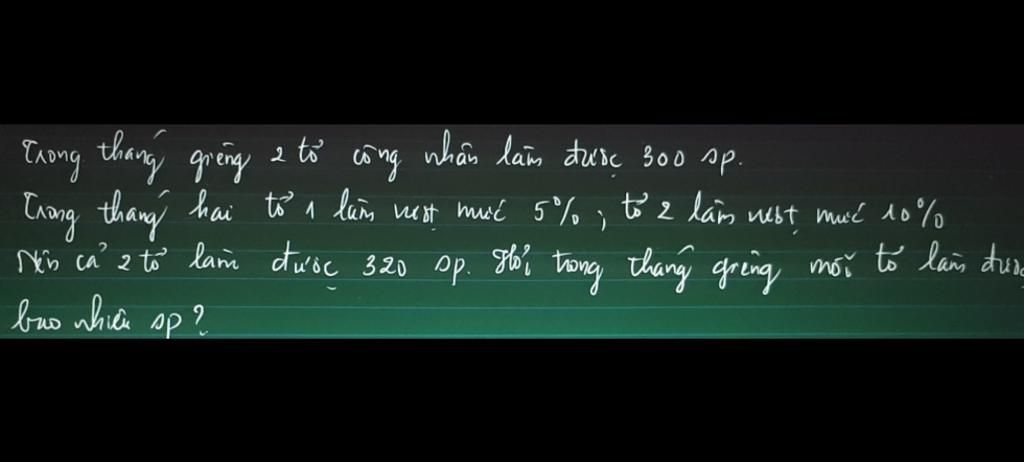 Trong tháng giêng 2 tổ công nhân làm được 300 sp.
Trong tháng hai tổ 1 làm vượt mức 5%, tổ 2 làm vượt mức 10%
Nên cả 2 tổ làm được 320 sp. Hỏi trong tháng giêng mỗi tổ làm được
bao nhiêu sp?